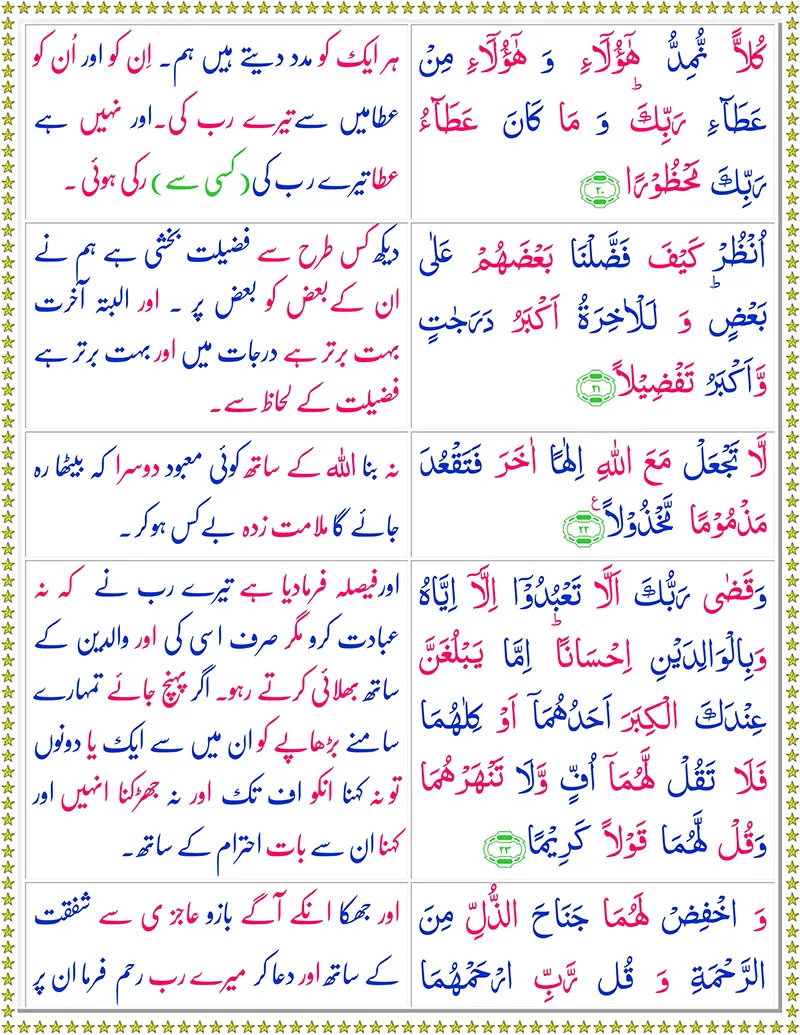 كُلًّا نُّمِدُّ هٰٓؤُلَآءِ وَ هٰٓؤُلَآءِ مِنْ
عَطَآءِ رَبِّكَ ؕ وَ مَا كَانَ عَطَآءُ
رَبِّكَ مَحْظُوْرًا ۲۰
ہر ایک کو مدد دیتے ہیں ہم۔ اِن کو اور اُن کو
عطامیں سے تیرے رب کی۔اور نہیں ہے
عطا تیرے رب کی (کسی سے) رکی ہوئی ۔
اُنْظُرْ كَيْفَ فَضَّلْنَا بَعْضَهُمْ عَلٰى
بَعْضٍ ؕ وَ لَلْاٰخِرَةُ اَكْبَرُ دَرَجٰتٍ
وَّاَكْبَرُ تَفْضِيْلًا ۲۱
دیکھ کس طرح سے فضیلت بخشی ہے ہم نے
ان کے بعض کو بعض پر ۔ اور البتہ آخرت
بہت برتر ہے درجات میں اور بہت برتر ہے
فضیلت کے لحاظ سے۔
لَّا تَجْعَلْ مَعَ اللّٰهِ اِلٰهًا اٰخَرَ فَتَقْعُدَ
مَذْمُوْمًا مَّخْذُوْلًا ۲۲ ع
نہ بنا اللہ کے ساتھ کوئی معبود دوسرا کہ بیٹھا رہ
جائے گا ملامت زدہ بےکس ہوکر ۔
وَقَضٰى رَبُّكَ اَلَّا تَعْبُدُوْٓا اِلَّآ اِيَّاهُ
وَبِالْوَالِدَيْنِ اِحْسَانًا ؕ اِمَّا يَبْلُغَنَّ
عِنْدَكَ الْكِبَرَ اَحَدُهُمَآ اَوْ كِلٰهُمَا
فَلَا تَقُلْ لَّهُمَآ اُفٍّ وَّلَا تَنْهَرْهُمَا
وَقُلْ لَّهُمَا قَوْلًا كَرِيْمًا ۲۳
اور فیصلہ فرمادیا ہے تیرے رب نے کہ نہ
عبادت کرو مگر صرف اسی کی اور والدین کے
ساتھ بھلائی کرتے رہو۔ اگر پہنچ جائے تمہارے
سامنے بڑھاپے کو ان میں سے ایک یا دونوں
تو نہ کہنا انکو اف تک اور نہ جھڑکنا انہیں اور
کہنا ان سے بات احترام کے ساتھ۔
وَ اخْفِضْ لَهُمَا جَنَاحَ الذُّلِّ مِنَ
الرَّحْمَةِ وَ قُل رَّبِّ ارْحَمْهُمَا
اور جھکا انکے آگے بازو عاجزی سے شفقت
کے ساتھ اور دعا کر میرے رب رحم فرما ان پر